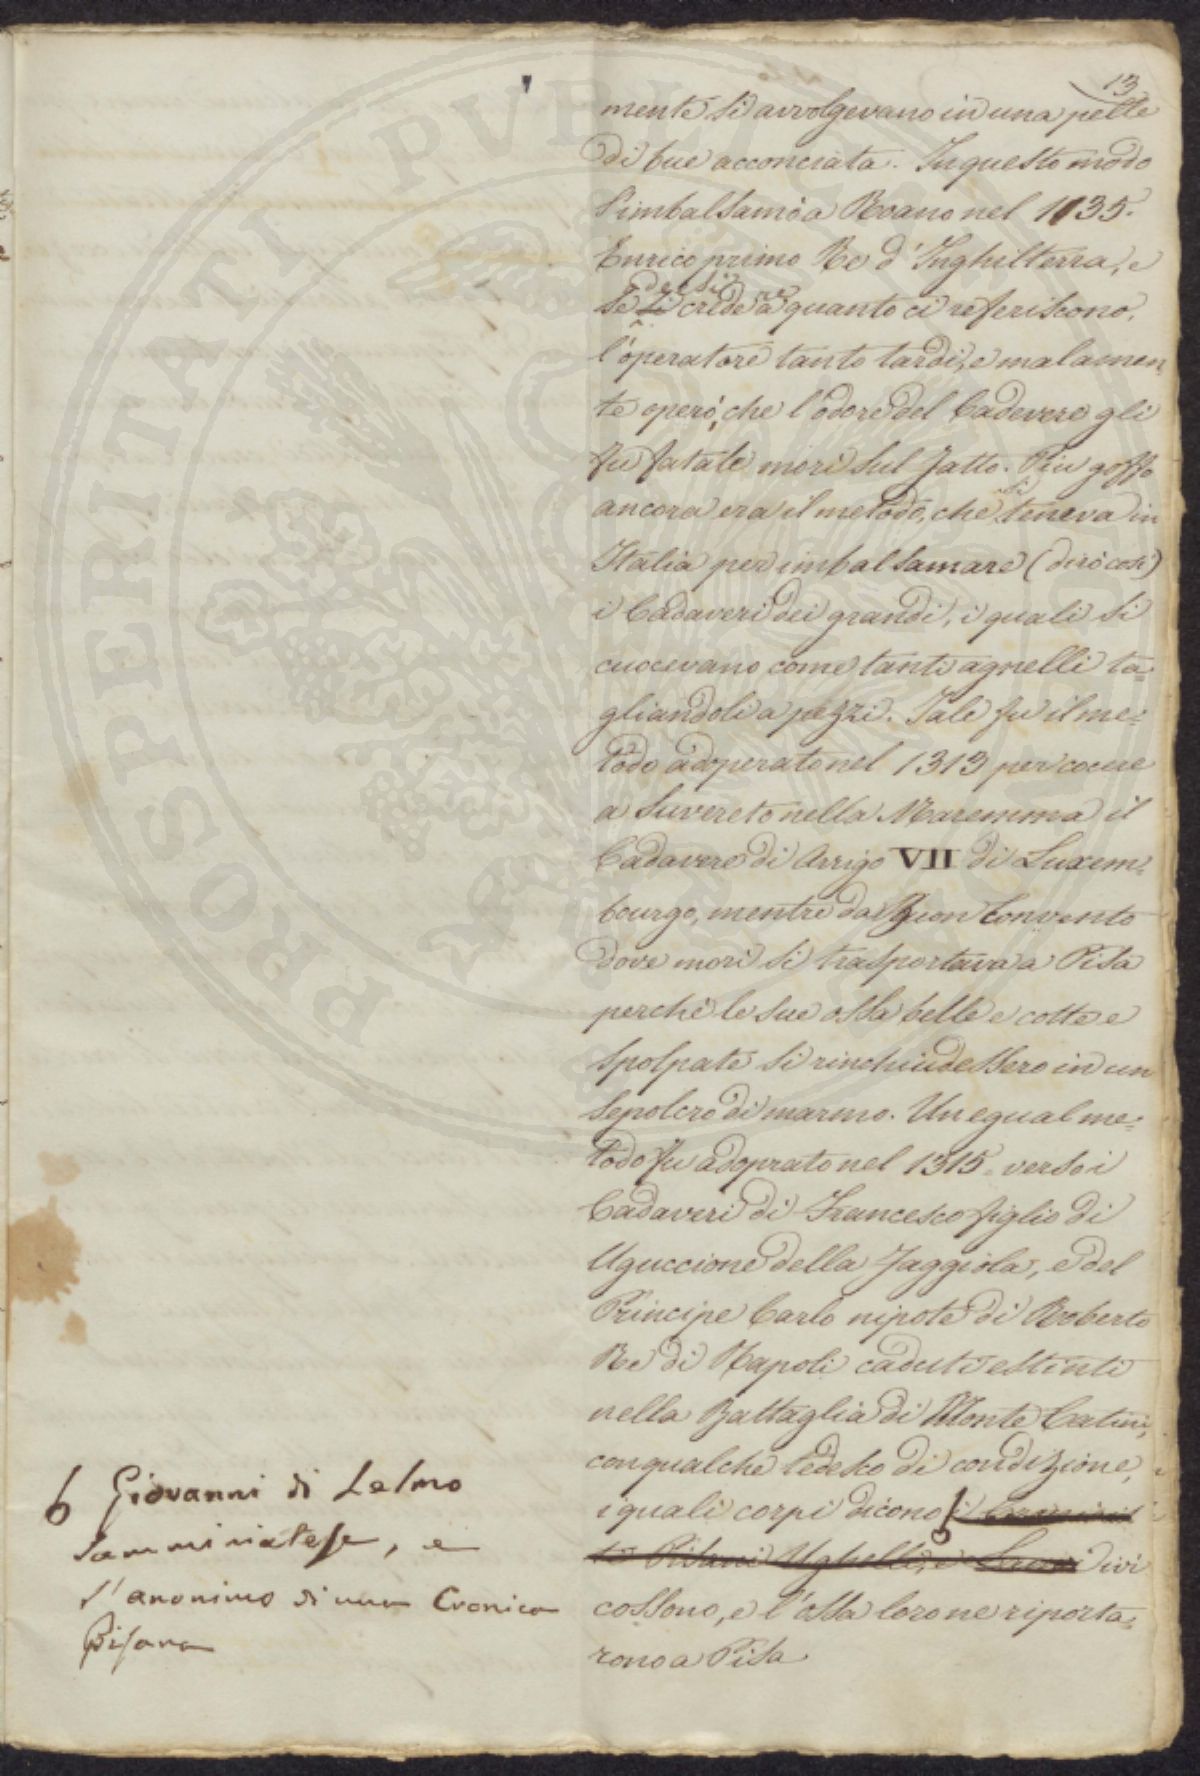 13
mente si avvolgevano in una pelle
di bue acconciata. In questo modo
s'imbalsamò a Roano nel 1135.
Enrico primo Re d'Inghilterra, e
se dessi credere a quanto ci referiscono,
l'operatore tanto tardi, e malamen
te operò, che l'odore del Cadevere gli
fu fatale morì sul fatto. Piu goffo
ancora era il metodo, che si teneva in
Italia per imbalsamare (dirò cosi)
i Cadaveri dei grandi, i quali si
cuocevano come tanti agnelli ta=
gliandoli a pezzi. Tale fu il me=
todo adoperato nel 1313 per cocere
a Suvereto nella Maremma il
Cadavere di Arrigo VII di Luxem=
bourgo, mentre da Buon Convento
dove morì si trasportava a Pisa
perchè le sue ossa belle e cotte e
spolpate si rinchiudessero in un
Sepolcro di marmo. Un egual me=
todo fu adoprato nel 1315. verso i
Cadaveri di Francesco figlio di
Uguccione della Faggiola, e del
Principe Carlo nipote di Roberto
Re di Napoli caduti estinti
nella Battaglia di Monte Catini,
con qualche tedesco di condizione,
i quali corpi dicono
Pisani Ughelli, e ivi
cossono, e l'ossa loro ne riporta=
rono a Pisa
6 Giovanni di Lelmo
Samminiatese, e
l'anonimo di una Cronica
Pisana
PROSPERITATI PVBLICAE